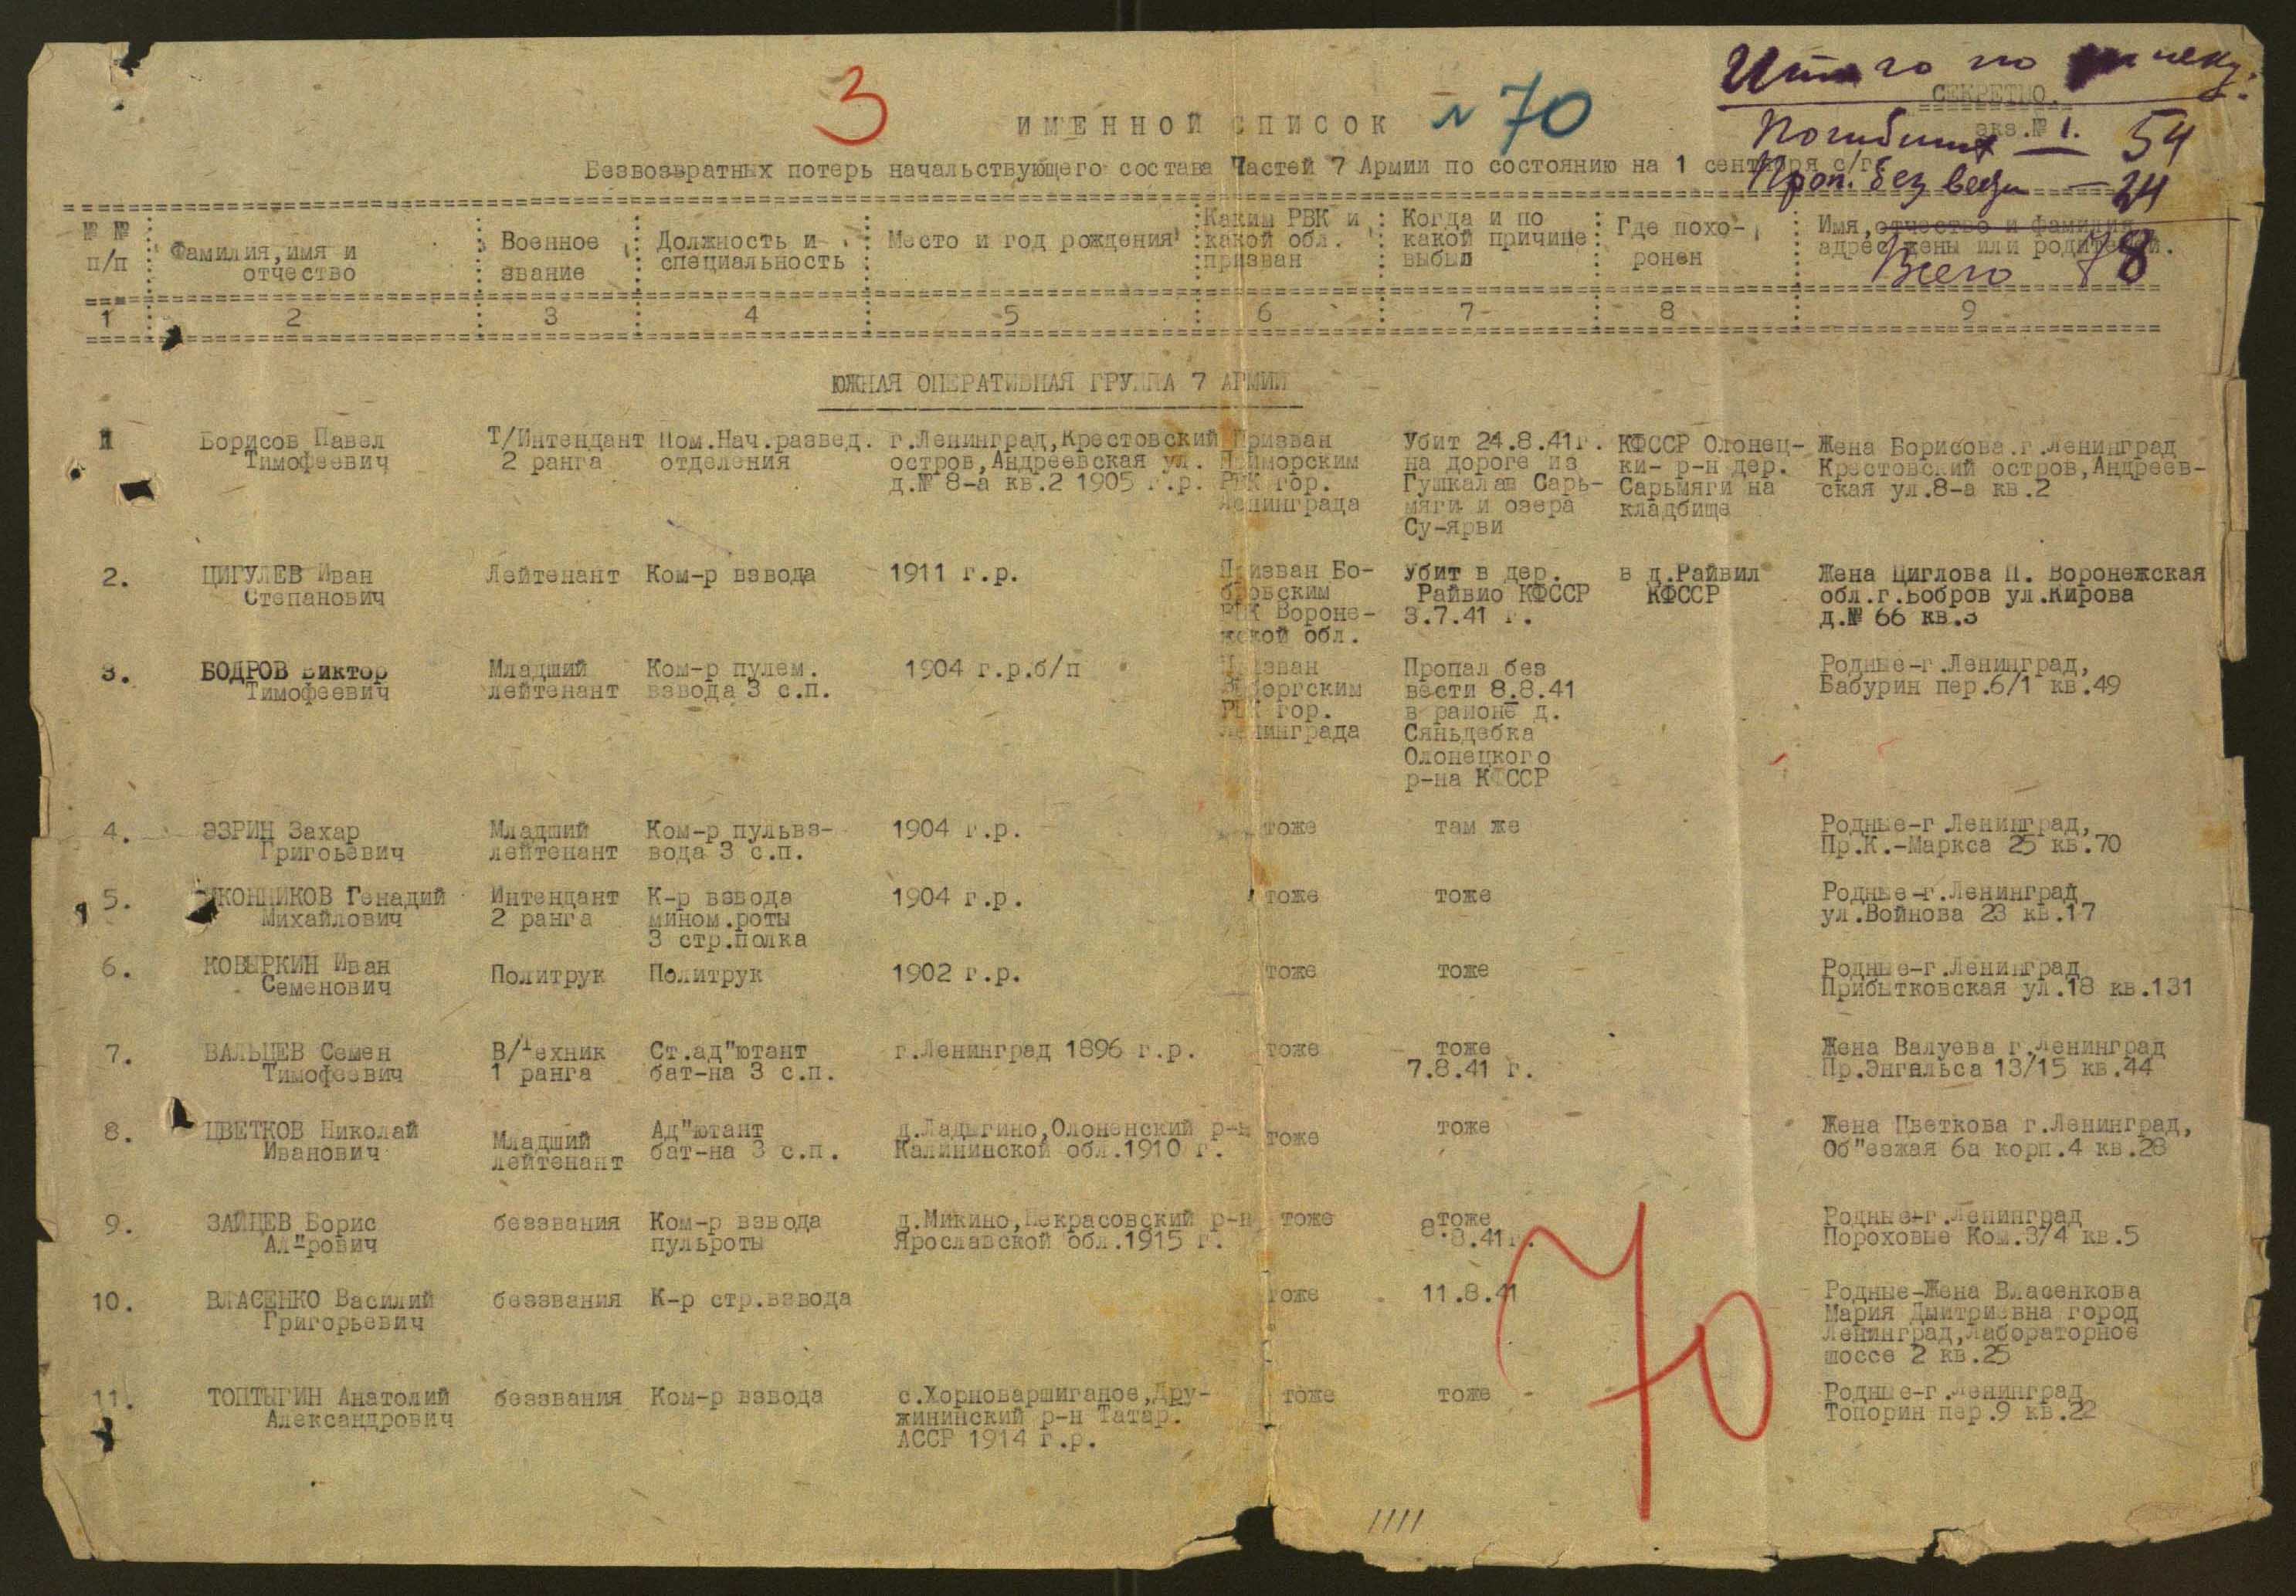 3
Итого по списку:
СЕКРЕТНО.
ИМЕННОЙ СПИСОК № 70
экз.№ 1.
Погибших — 54
Безвозвратных потерь начальствующего состава Частей 7 Армии по состоянию на 1 сентября с/г.
Проп. без вести — 24
Всего 78
№ № п/п
Фамилия,имя и отчество
Военное звание
Должность и специальность
Место и год рождения
Каким РВК и какой обл. призван
Когда и по какой причине выбыл
Где похо- ронен
Имя,отчество и фамилия адрес жены или родителей.
1 2 3 4 5 6 7 8 9
ЮЖНАЯ ОПЕРАТИВНАЯ ГРУППА 7 АРМИИ
1
Борисов Павел
Тимофеевич
Т/Интендант
2 ранга
Пом.Нач.развед.
отделения
г.Ленинград,Крестовский
остров,Андреевская ул.
д.№ 8-а кв.2 1905 г.р.
Призван
Приморским
РВК гор.
Ленинграда
Убит 24.8.41г.
на дороге из
Гушкалаш Сарь-
мяги и озера
Су-ярви
КФССР Олонец-
ки- р-н дер.
Сарьмяги на
кладбище
Жена Борисова.г.Ленинград
Крестовский остров,Андреев-
ская ул.8-а кв.2
2.
ЦИГУЛЕВ Иван
Степанович
Лейтенант
Ком-р взвода
1911 г.р.
Призван Бо-
бровским
РВК Вороне-
жской обл.
Убит в дер.
Райвио КФССР
3.7.41 г.
в д.Райвил
КФССР
Жена Циглова П. Воронежская
обл.г.Бобров ул.Кирова
д.№ 66 кв.3
3.
БОДРОВ Виктор
Тимофеевич
Младший
лейтенант
Ком-р пулем.
взвода 3 с.п.
1904 г.р.б/п
Призван
Выборгским
РВК гор.
Ленинграда
Пропал без
вести 8.8.41
в районе д.
Сяньдебка
Олонецкого
р-на КФССР
Родные-г.Ленинград,
Бабурин пер.6/1 кв.49
4.
ЭЗРИН Захар
Григоьевич
Младший
лейтенант
Ком-р пульвз-
вода 3 с.п.
1904 г.р.
тоже
там же
Родные-г Ленинград,
Пр.К.-Маркса 25 кв.70
5.
ИКОННИКОВ Генадий
Михайлович
Интендант
2 ранга
К-р взвода
мином.роты
3 стр.полка
1904 г.р.
тоже
тоже
Родные-г.Ленинград
ул.Войнова 23 кв.17
6.
КОВЫРКИН Иван
Семенович
Политрук
Политрук
1902 г.р.
тоже
тоже
Родные-г.Ленинград
Прибытковская ул.18 кв.131
7.
ВАЛЬЦЕВ Семен
Тимофеевич
В/Техник
1 ранга
Ст.ад"ютант
бат-на 3 с.п.
г.Ленинград 1896 г.р.
тоже
тоже
7.8.41 г.
Жена Валуева г.Ленинград
Пр.Энгельса 13/15 кв.44
8.
ЦВЕТКОВ Николай
Иванович
Младший
лейтенант
Ад"ютант
бат-на 3 с.п.
д.Ладыгино,Олоненский р-н
Калининской обл.1910 г.
тоже
тоже
Жена Цветкова г.Ленинград,
Об"езжая 6а корп.4 кв.28
9.
ЗАЙЦЕВ Борис
Ал"рович
беззвания
Ком-р взвода
пульроты
д.Микино,Некрасовский р-н
Ярославской обл.1915 г.
тоже
тоже
8.8.41г.
Родные-г.Ленинград
Пороховые Ком.3/4 кв.5
10.
ВЛАСЕНКО Василий
Григорьевич
беззвания
К-р стр.взвода
тоже
11.8.41
Родные-Жена Власенкова
Мария Дмитриевна город
Ленинград,Лабораторное
шоссе 2 кв.25
11.
ТОПТЫГИН Анатолий
Александрович
беззвания
Ком-р взвода
с.Хорноваршиганое,Дру-
жининский р-н Татар.
АССР 1914 г.р.
тоже
тоже
Родные-г.Ленинград
Топорин пер.9 кв.22
70
1111